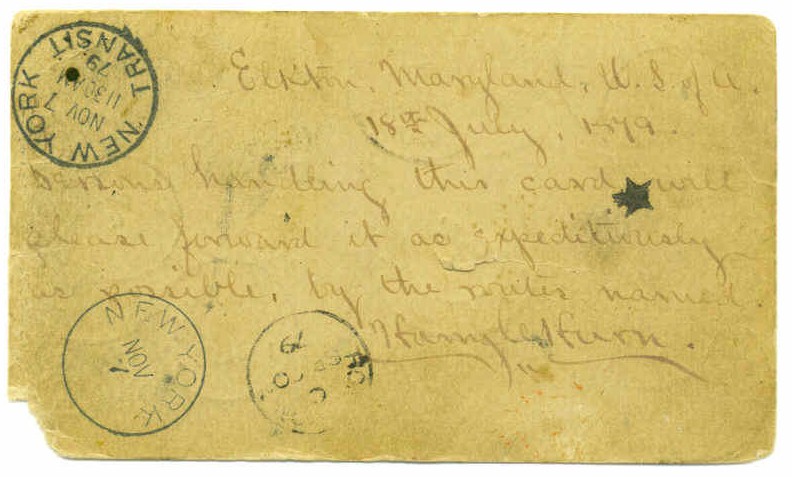 NEW YORK
NOV 7
11 30 AM
79
TRANSIT
Elkton, Maryland, U. S. of A.
18th July, 1879.
Persons handling this card will
please forward it as expeditiously
as possible, by the writer named.
NEW YORK
NOV
7